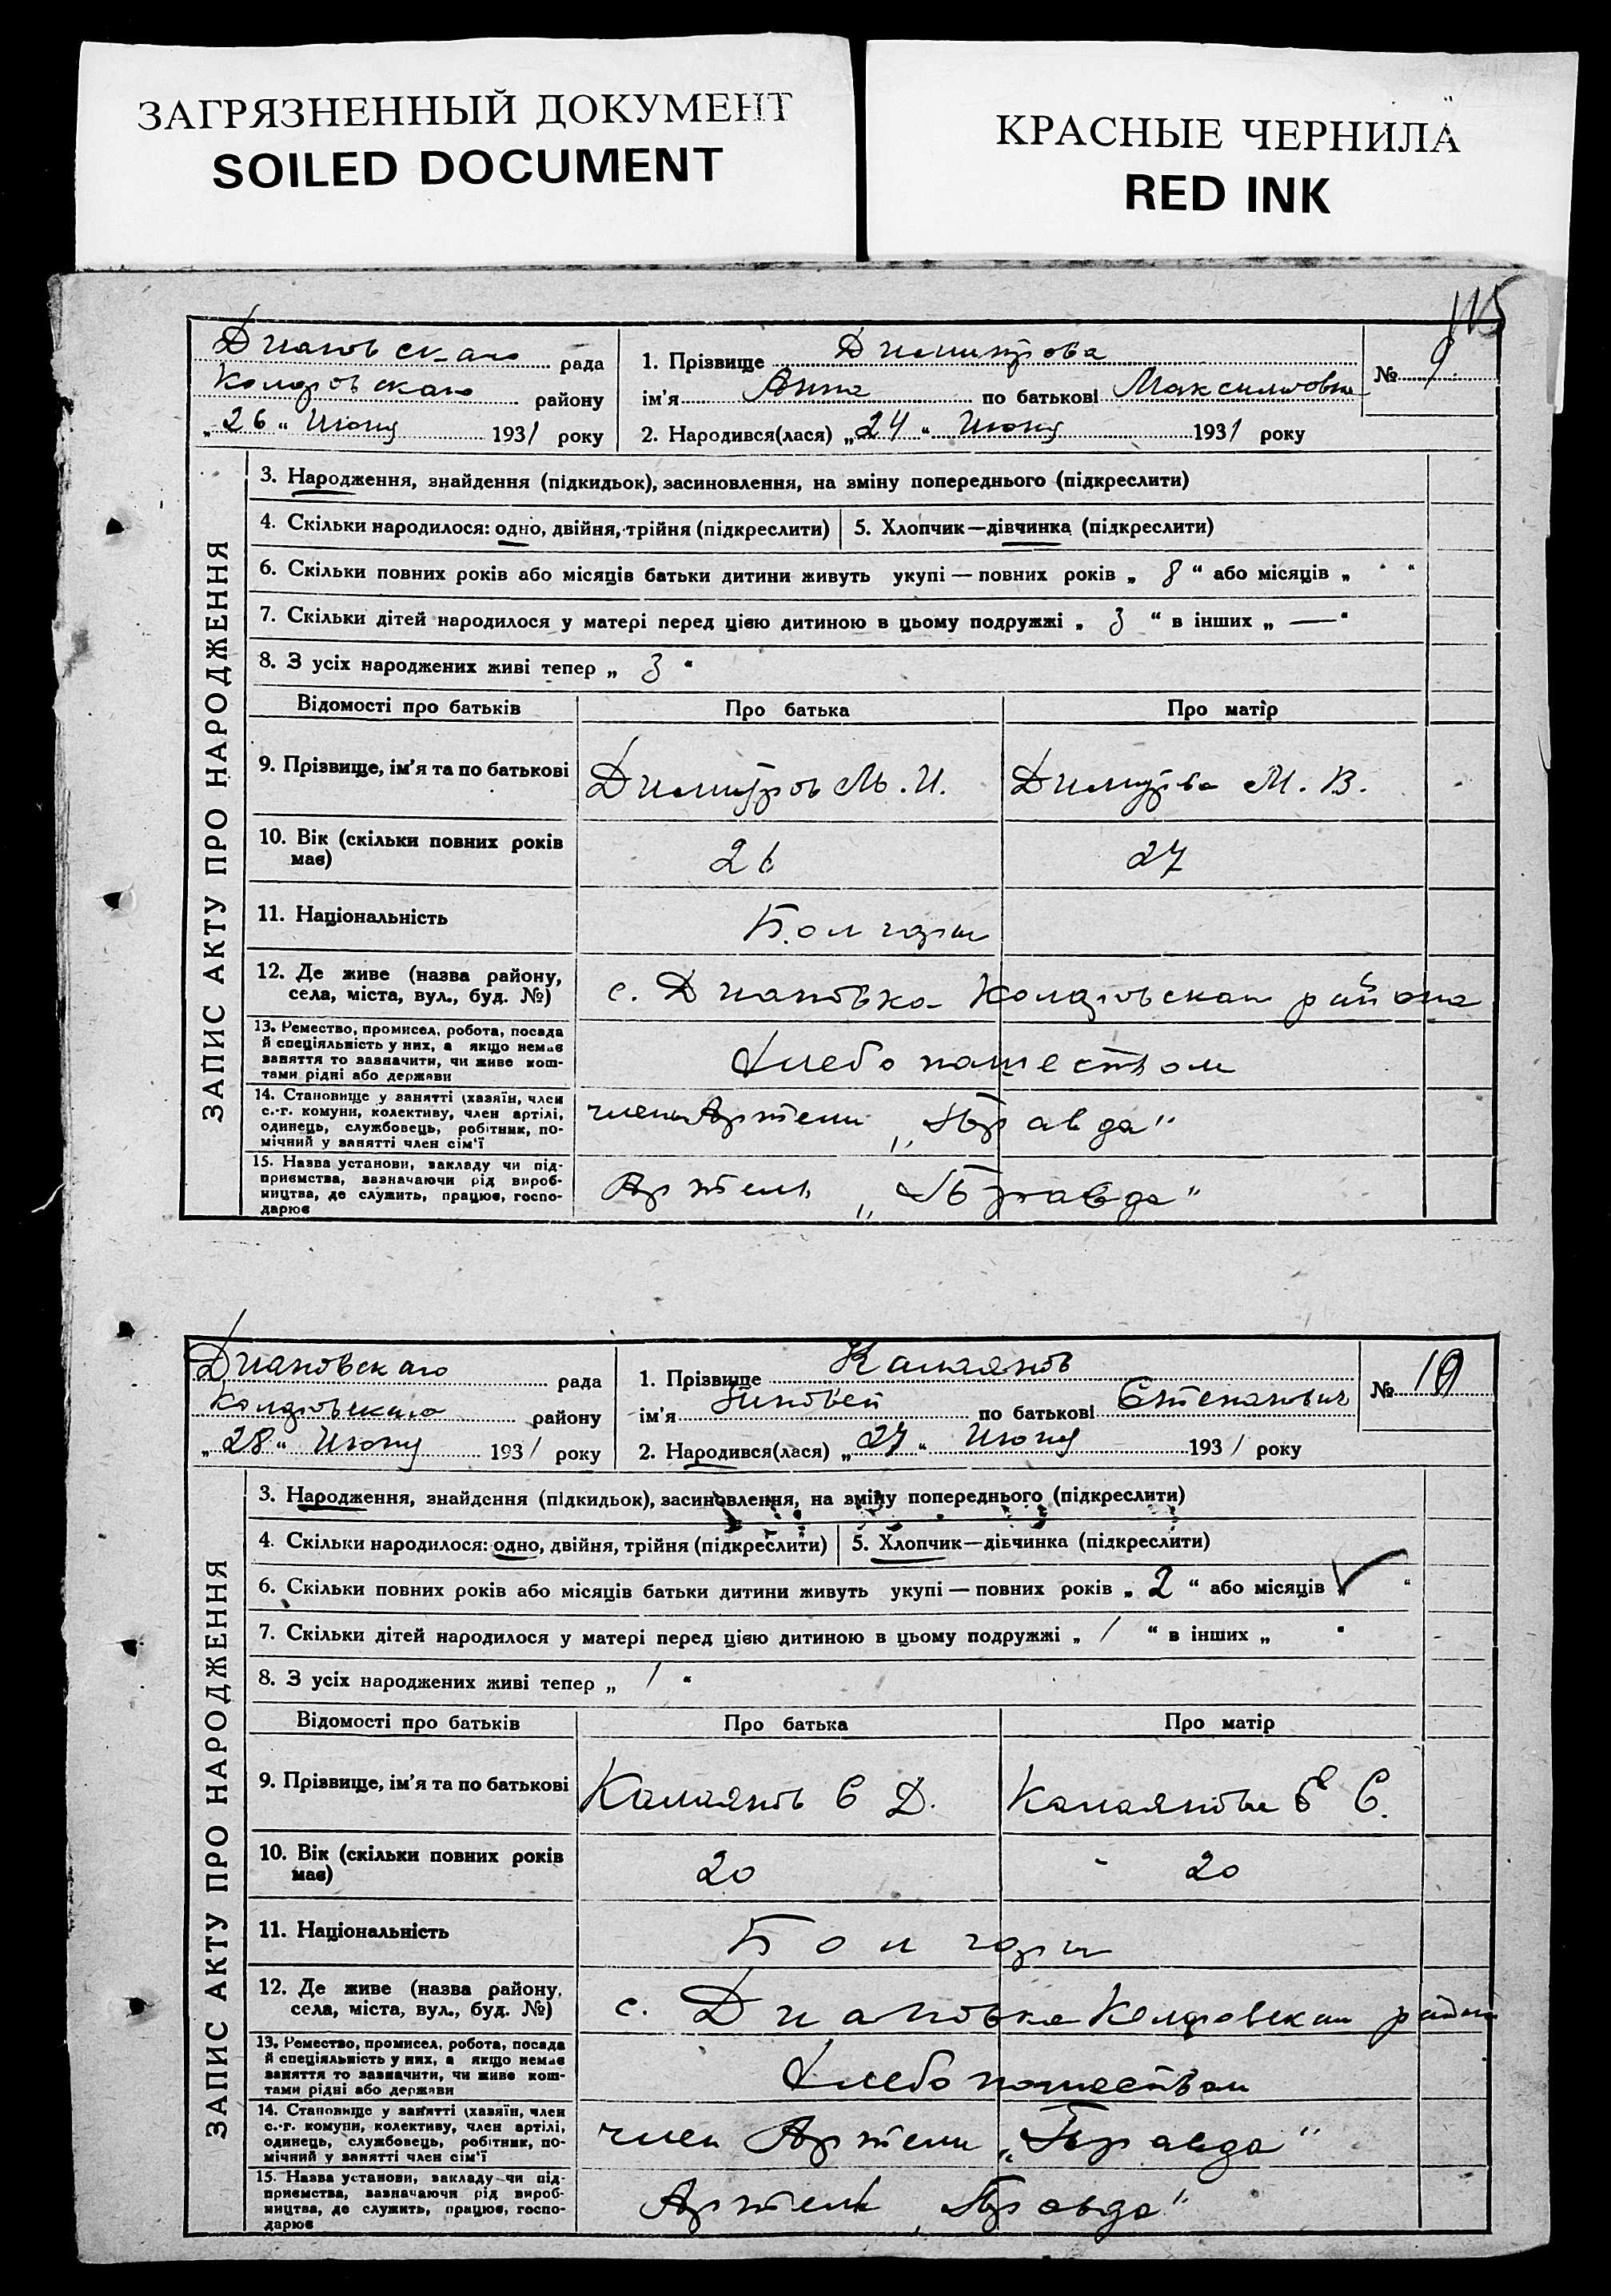 ЗАГРЯЗНЕННЫЙ ДОКУМЕНТ
SOILED DOCUMENT
КРАСНЫЕ ЧЕРНИЛА
RED INK
115
Диановскаго рада
Коларовскаго району
„26“ Июня 1931 року
1. Прізвище Димитрова
ім'я Анна по батькові Максимовна
2. Народився(лася) „24“ Июня 1931 року
№ 9
ЗАПИС АКТУ ПРО НАРОДЖЕННЯ
3. Народження, знайдення (підкидьок), засиновлення, на зміну попереднього (підкреслити)
4. Скільки народилося: одно, двійня, трійня (підкреслити) 5. Хлопчик—дівчинка (підкреслити)
6. Скільки повних років або місяців батьки дитини живуть укупі — повних років „ 8 “ або місяців „ “
7. Скільки дітей народилося у матері перед цією дитиною в цьому подружжі „ 3 “ в інших „ — “
8. З усіх народжених живі тепер „ 3 “
Відомості про батьків Про батька Про матір
9. Прізвище, ім'я та по батькові Димитров М. И. Димитрова М. В.
10. Вік (скільки повних років має) 26 27
11. Національність Болгары
12. Де живе (назва району, села, міста, вул., буд. №) с. Диановка Коларовскаго района
13. Ремество, промисел, робота, посада
й спеціяльність у них, а якщо немає
заняття то зазначити, чи живе кош-
тами рідні або держави
Хлебопашеством
14. Становище у занятті (хазяїн, член
с.-г. комуни, колективу, член артілі,
одинець, службовець, робітник, по-
мічний у занятті член сім'ї
члены Артели „Правда“
15. Назва установи, закладу чи під-
приємства, зазначаючи рід вироб-
ництва, де служить, працює, госпо-
дарює
Артель „Правда“
Диановскаго рада
Коларовскаго району
„28“ Июня 1931 року
1. Прізвище Калаянов
ім'я Зиновей по батькові Степанович
2. Народився(лася) „27“ Июня 1931 року
№ 10
ЗАПИС АКТУ ПРО НАРОДЖЕННЯ
3. Народження, знайдення (підкидьок), засиновлення, на зміну попереднього (підкреслити)
4. Скільки народилося: одно, двійня, трійня (підкреслити) 5. Хлопчик—дівчинка (підкреслити)
6. Скільки повних років або місяців батьки дитини живуть укупі — повних років „ 2 “ або місяців „ “
7. Скільки дітей народилося у матері перед цією дитиною в цьому подружжі „ 1 “ в інших „ “
8. З усіх народжених живі тепер „ 1 “
Відомості про батьків Про батька Про матір
9. Прізвище, ім'я та по батькові Калаянов С Д. Калаянова Е С.
10. Вік (скільки повних років має) 20 20
11. Національність Болгары
12. Де живе (назва району, села, міста, вул., буд. №) с. Диановка Коларовскаго района
13. Ремество, промисел, робота, посада
й спеціяльність у них, а якщо немає
заняття то зазначити, чи живе кош-
тами рідні або держави
Хлебопашеством
14. Становище у занятті (хазяїн, член
с.-г. комуни, колективу, член артілі,
одинець, службовець, робітник, по-
мічний у занятті член сім'ї
член Артели „Правда“
15. Назва установи, закладу чи під-
приємства, зазначаючи рід вироб-
ництва, де служить, працює, госпо-
дарює
Артель „Правда“